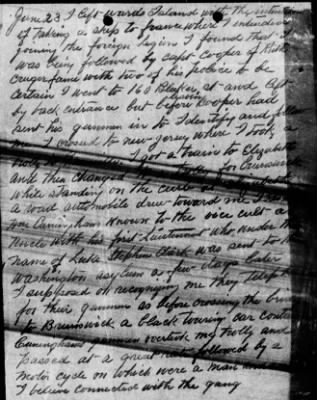 June 23 I left wards Island with the intention
of taking a ship to france where I intended
joining the foreign legion I found that I
was being followed by capt. Cooper of
cruger fame with two of his police to be
certain I went to 160 Bleeker st and left
by back entrance but before Cooper had
sent his gunmen in to Identify and
me I crossed to new Jersey where I took a
I got a train to Elizabeth
and then changed for Brunswick
while standing on the curb
a road automobile drew toward me I
Tom Cunningham known to the vice cult a
his first lieutenant who under the
name of Luke Stephen Clark was sent to
Washington asylum a few days later
I supposed on recognizing me they telep
for their gunmen as before crossing the bri
to Brunswick a black touring car cont
Cuninghams gunmen overtook my trolly and
passed at a great rate followed by a
motor cycle on which were a man and
I believe connected with the gang